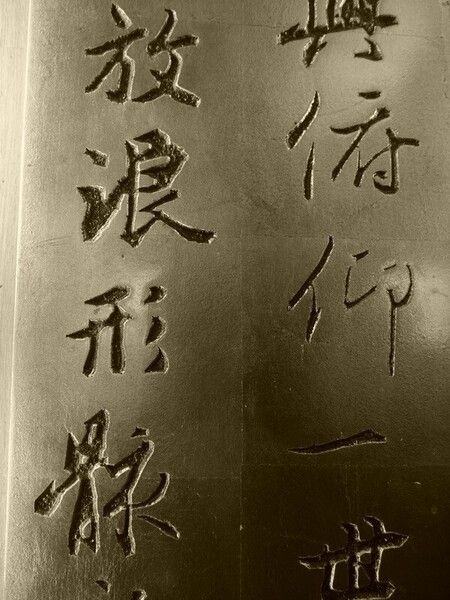 與俯仰一世
放浪形骸